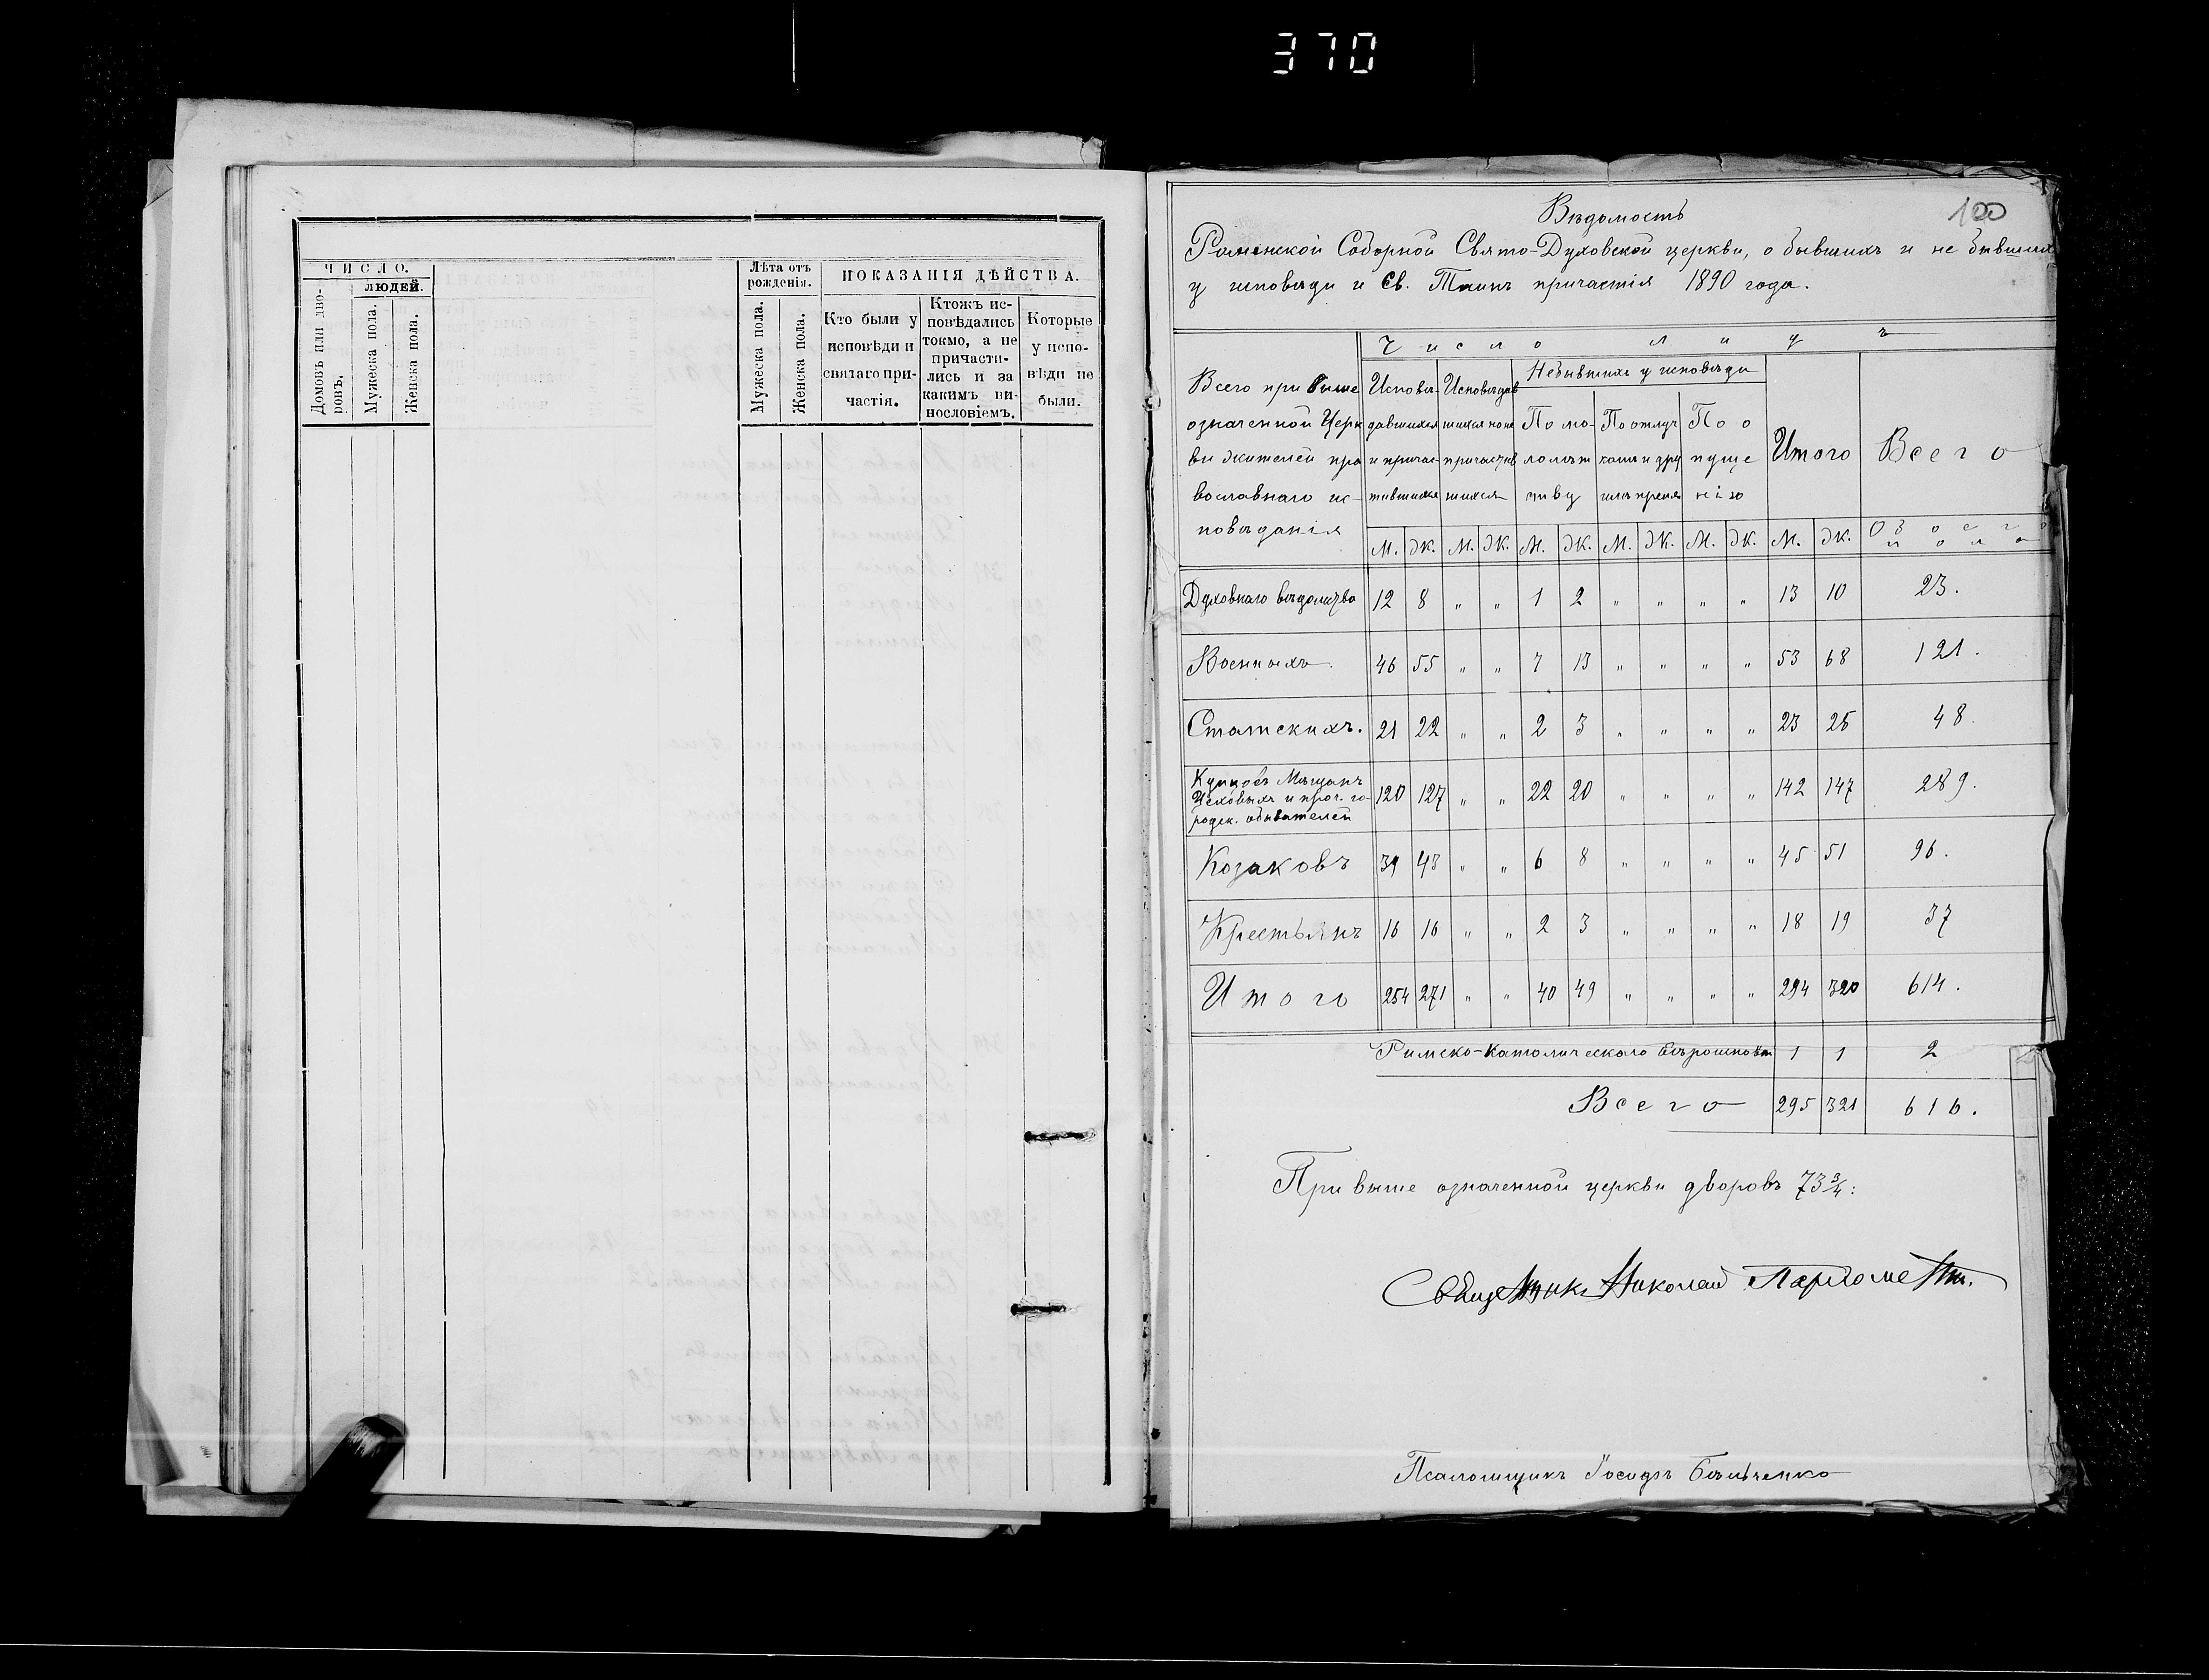 370
ЧИСЛО.
людей.
Домовъ или дво-
ровъ.
Мужеска пола.
Женска пола.
Лѣта отъ
рожденія.
Мужеска пола.
Женска пола.
ПОКАЗАНІЯ ДѢЙСТВА.
Кто были у
исповѣди и
святаго при-
частія.
Ктожъ ис-
повѣдались
токмо, а не
причасти-
лись и за
какимъ ви-
нословіемъ.
Которые
у испо-
вѣди не
были.
100
Вѣдомость
Роменской Соборной Свято-Духовской церкви, о бывшихъ и не бывшихъ
у исповѣди и Св. Таинъ причастія 1890 года.
Всего при выше
означенной Церк
ви жителей пра
вославнаго ис-
повѣданія
Число лицъ
Исповѣ-
давшихся
и причас-
тившихся
Исповѣдав
шихся но не
причастив
шихся
Небывшихъ у исповѣди
По ма-
лолѣт
ству
По отлуч
камъ
По о
пуще
нію
Итого
Всего
М. Ж. М. Ж. М. Ж. М. Ж. М. Ж. М. Ж. Обоего пола
Духовнаго вѣдомства 12 8 " " 1 2 " " " " 13 10 23.
Военныхъ. 46 55 " " 7 13 " " " " 53 68 121.
Статскихъ. 21 22 " " 2 3 " " " " 23 25 48.
Купцовъ Мѣщанъ
Цеховыхъ и проч. го-
родск. обывателей 120 127 " " 22 20 " " " " 142 147 289.
Козаковъ 39 43 " " 6 8 " " " " 45 51 96.
Крестьянъ 16 16 " " 2 3 " " " " 18 19 37
Итого 254 271 " " 40 49 " " " " 294 320 614.
Римско-католическаго 1 1 2
Всего 295 321 616.
При выше означенной церкви дворовъ 73 3/4:
Священникъ Николай
Псаломщикъ Іосифъ